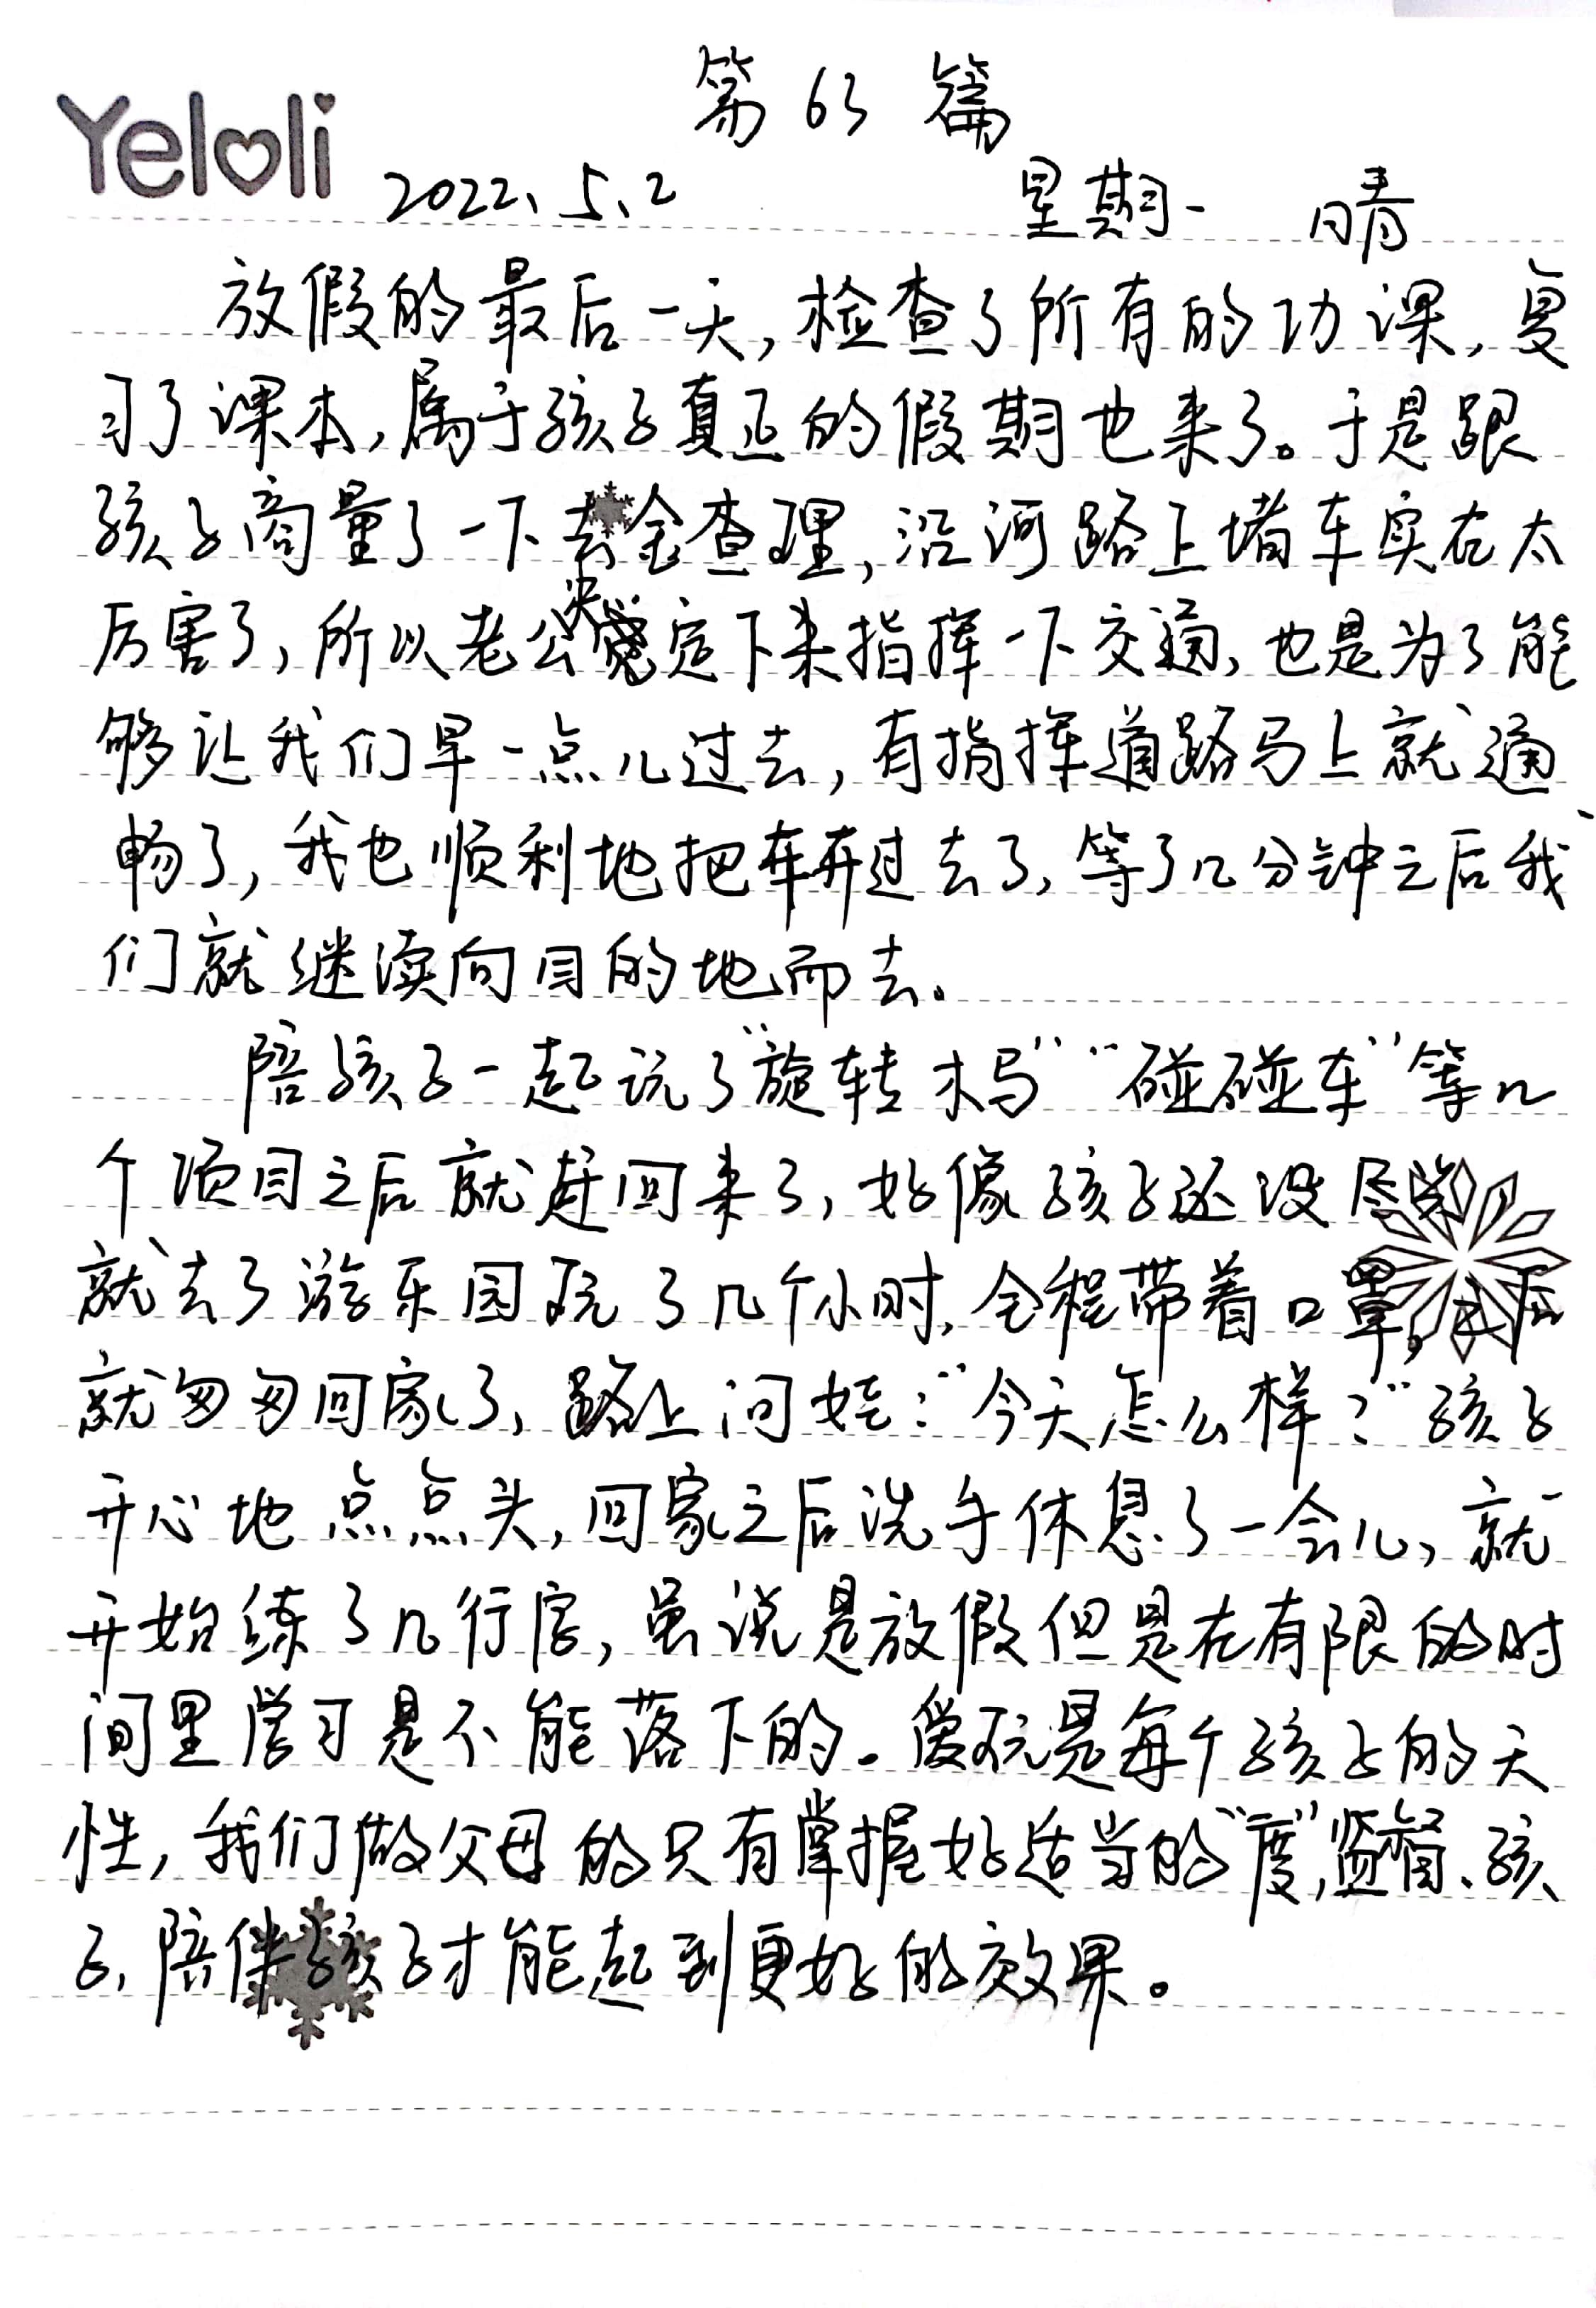 第63篇
Yeloli
2022、5、2 星期一 晴
放假的最后一天，检查了所有的功课，复
习了课本，属于孩子真正的假期也来了。于是跟
孩子商量了一下去金查理，沿河路上堵车实在太
厉害了，所以老公决定下来指挥一下交通，也是为了能
够让我们早一点儿过去，有指挥道路马上就通
畅了，我也顺利地把车开过去了，等了几分钟之后我
们就继续向目的地而去。
陪孩子一起玩了“旋转木马”“碰碰车”等几
个项目之后就赶回来了，好像孩子还没尽兴，
就去了游乐园玩了几个小时，全程带着口罩，之后
就匆匆回家了，路上问娃：“今天怎么样？”孩子
开心地点点头，回家之后洗手休息了一会儿，就
开始练了几行字，虽说是放假但是在有限的时
间里学习是不能落下的。爱玩是每个孩子的天
性，我们做父母的只有掌握好适当的“度”，监督、孩
子，陪伴孩子才能起到更好的效果。